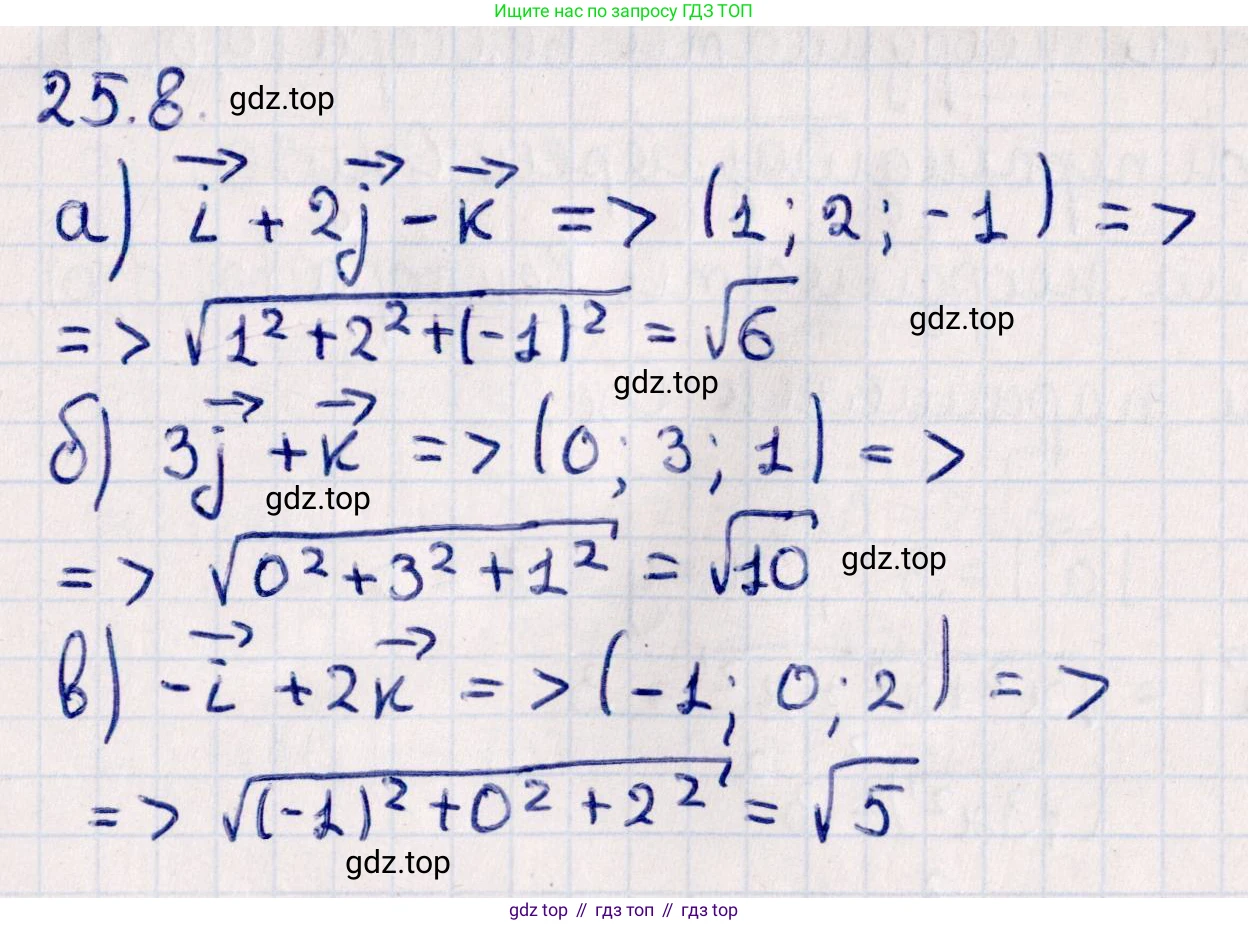 Ищите нас по запросу ГДЗ ТОП
25.8. gdz.top
а) i⃗ + 2j⃗ - k⃗ => (1; 2; -1) =>
=> √(1² + 2² + (-1)²) = √6 gdz.top
gdz.top
б) 3j⃗ + k⃗ => (0; 3; 1) =>
gdz.top
=> √(0² + 3² + 1²) = √10 gdz.top
в) -i⃗ + 2k⃗ => (-1; 0; 2) =>
=> √((-1)² + 0² + 2²) = √5
gdz.top
gdz top // гдз топ // гдз top